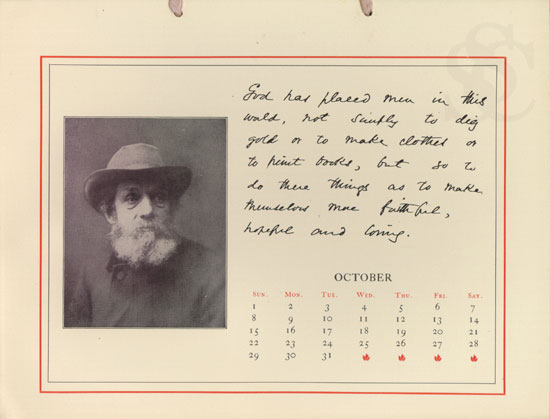 God has placed men in this
world, not simply to dig
gold or to make clothes or
to print books, but so to
do these things as to make
themselves more faithful,
hopeful and loving.
OCTOBER
SUN. MON. TUE. WED. THU. FRI. SAT.
1 2 3 4 5 6 7
8 9 10 11 12 13 14
15 16 17 18 19 20 21
22 23 24 25 26 27 28
29 30 31